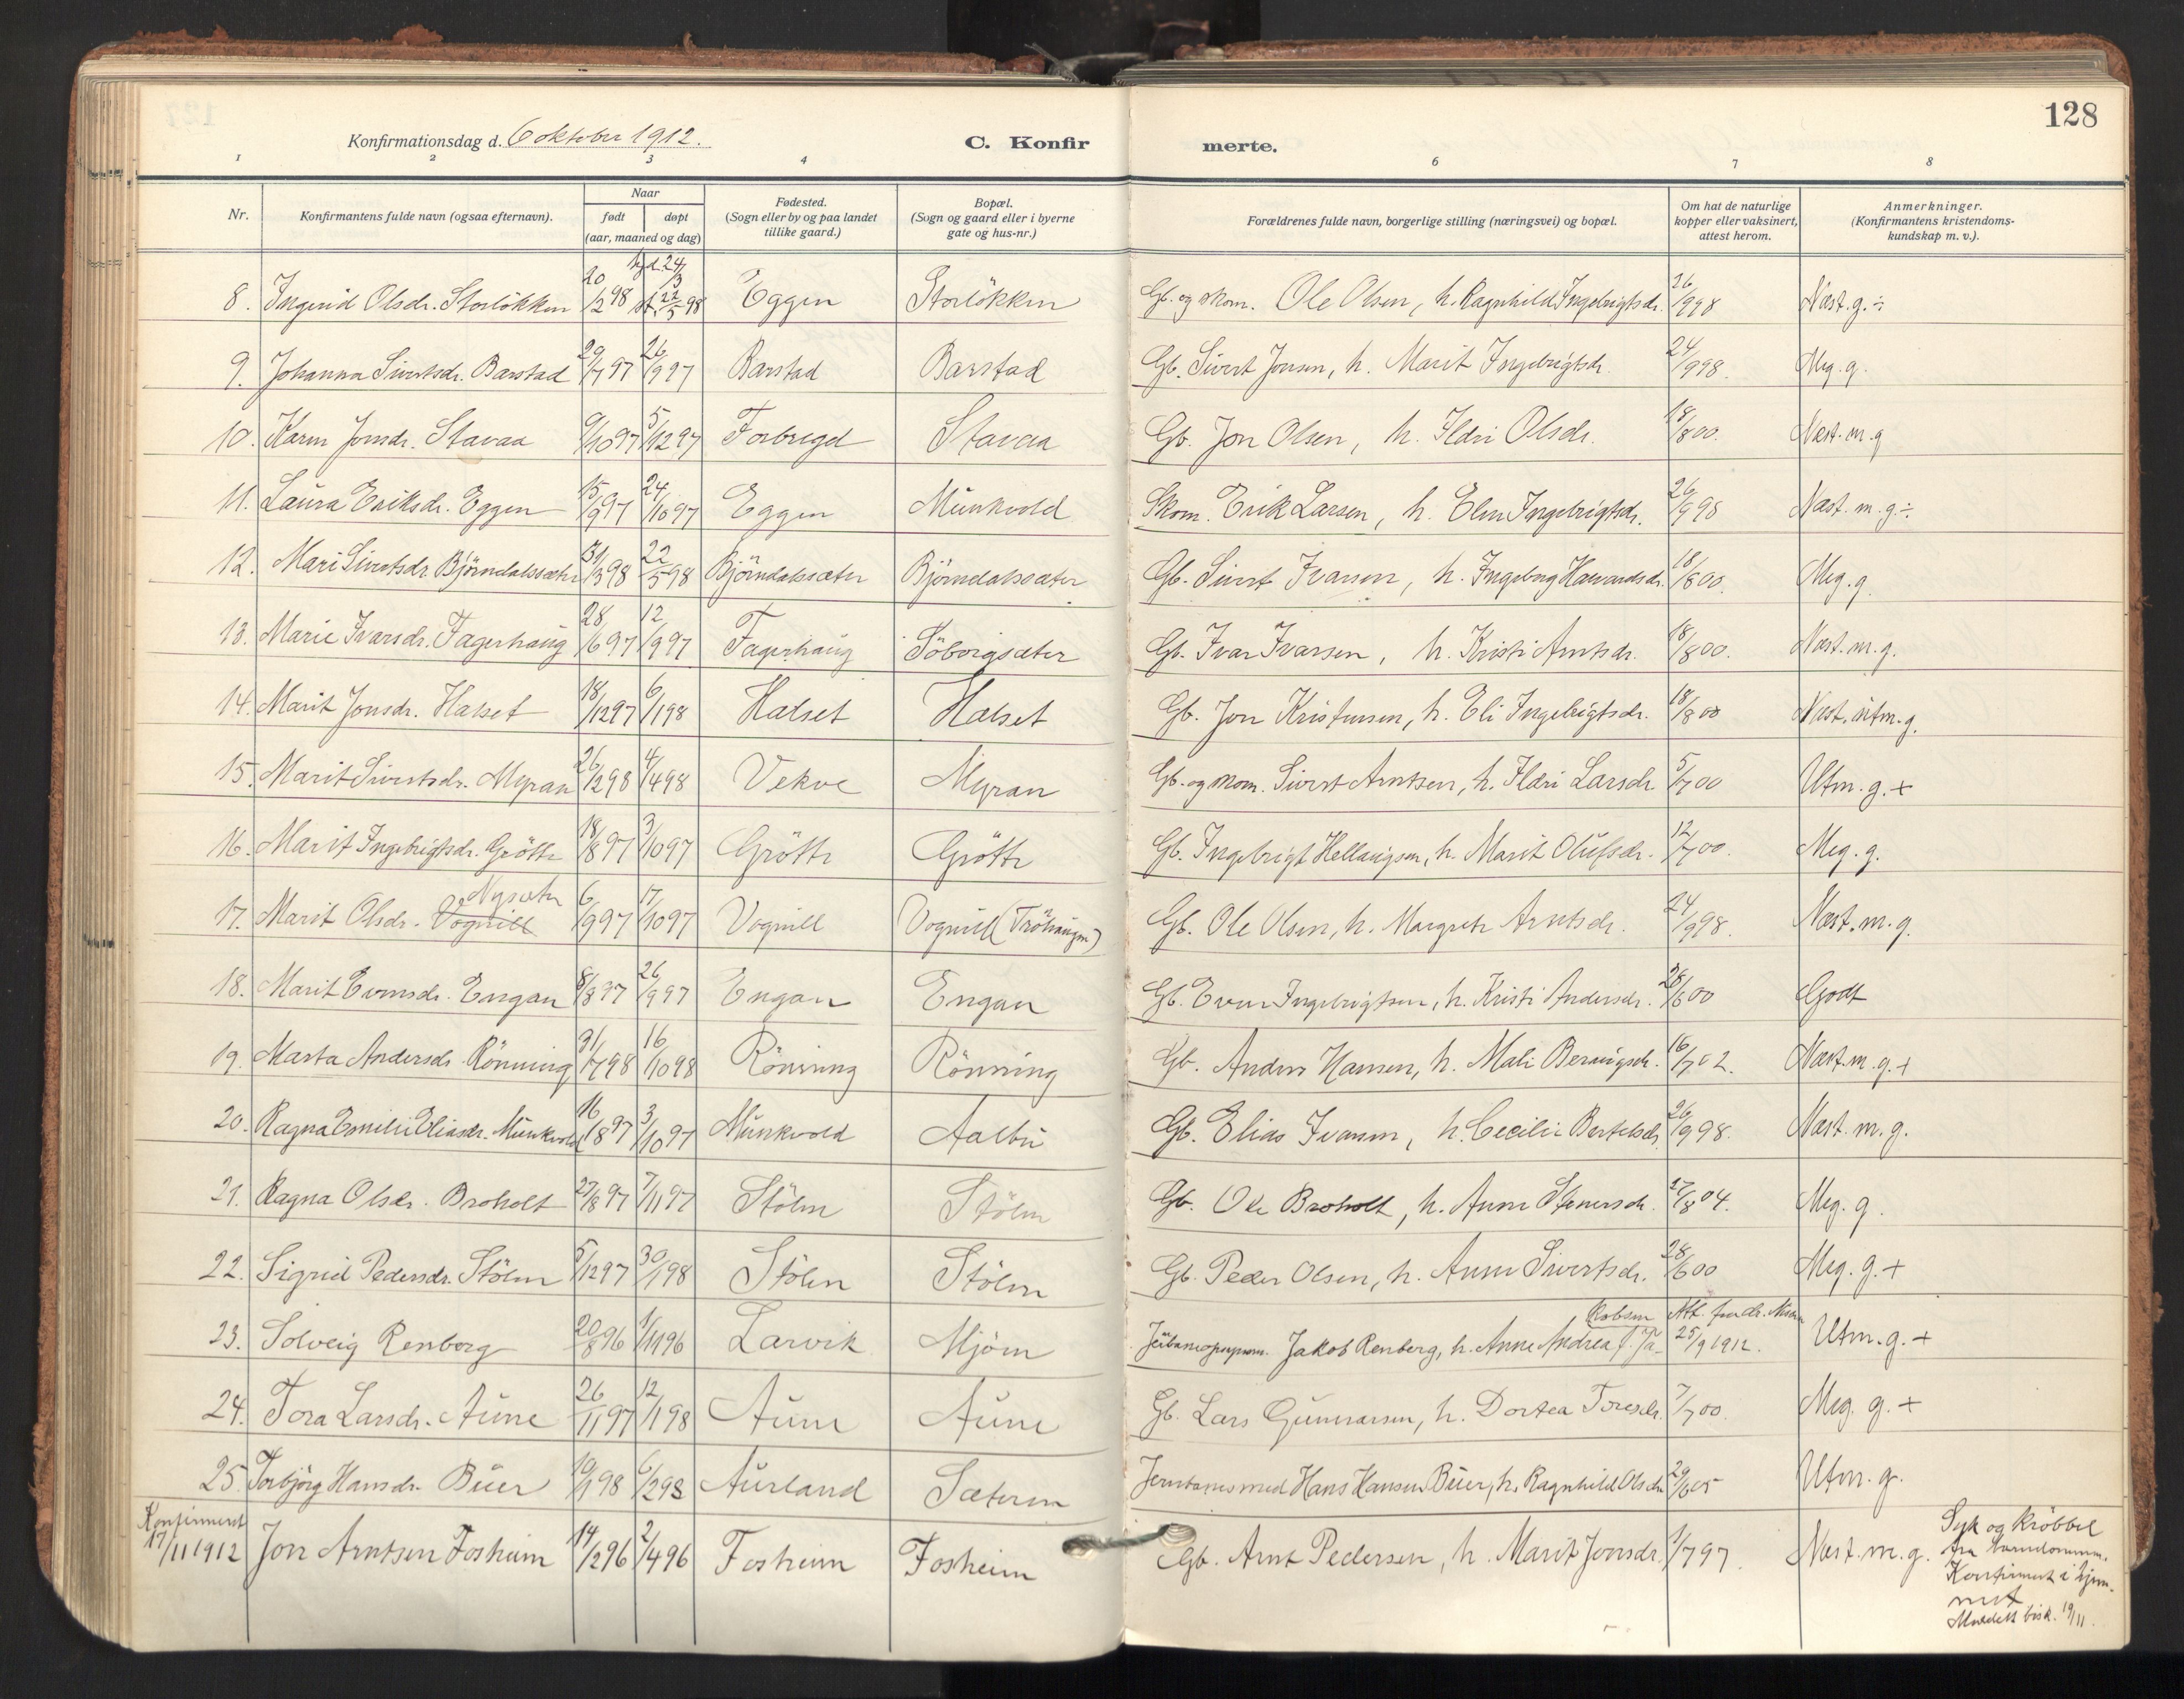 128
Konfirmationsdag d. 6 oktober 1912.
C. Konfirmerte.
1 2 3 4 6 7 8
Nr. Konfirmantens fulde navn (ogsaa efternavn). Naar født døpt (aar, maaned og dag) Fødested. (Sogn eller by og paa landet tillike gaard.) Bopæl. (Sogn og gaard eller i byerne gate og hus-nr.) Forældrenes fulde navn, borgerlige stilling (næringsvei) og bopæl. Om hat de naturlige kopper eller vaksinert, attest herom. Anmerkninger. (Konfirmantens kristendomskundskap m. v.).
8. Ingerid Olsdr. Storlökken 20/2 98 hjd. 24/3 st. 22/5 98 Eggen Storlökken Gb. og skom. Ole Olsen, h. Ragnhild Ingebrigtsdr. 26/9 98 Næst. g. ÷
9. Johanna Sivertsdr. Barstad 29/7 97 26/9 97 Barstad Barstad Gb. Sivert Jonsen, h. Marit Ingebrigtsdr. 24/9 98. Meg. g.
10. Karen Jonsdr. Stavaa 9/10 97 5/12 97 Forbregd Stavaa Gb. Jon Olsen, h. Ildri Olsdr. 18/8 00. Næst. m. g
11. Laura Eriksdr. Eggen 15/9 97 24/10 97 Eggen Munkvold Skom. Erik Larsen, h. Elen Ingebrigtsdr. 26/9 98 Næst. m. g. ÷.
12. Mari Sivertsdr Björndalssæter 31/3 98 22/5 98 Björndalssæter Björndalssæter Gb. Sivert Ivarsen, h. Ingeborg Halvardsdr. 18/8 00. Meg. g.
13. Marie Ivarsdr. Fagerhaug 28/6 97 12/9 97 Fagerhaug Söborgsæter Gb. Ivar Ivarsen, h. Kristi Arntsdr. 18/8 00. Næst. m. g.
14. Marit Jonsdr. Halset 18/12 97 6/1 98 Halset Halset Gb. Jon Kristensen, h. Eli Ingebrigtsdr. 18/8 00 Næst. utm. g.
15. Marit Sivertsdr. Myran 26/2 98 4/4 98 Vekve Myran Gb. og skom. Sivert Arntsen, h. Ildri Larsdr. 5/7 00 Utm. g. +
16. Marit Ingebrigtsdr. Grötte 18/8 97 3/10 97 Grötte Grötte Gb. Ingebrigt Hellaugsen, h. Marit Olufsdr. 12/7 00. Meg. g.
17. Marit Olsdr. Vognill Nysæter 6/9 97 17/10 97 Vognill Vognill (Tröhaugen) Gb. Ole Olsen, h. Margrete Arntsdr. 24/9 98. Næst. m. g.
18. Marit Evensdr. Engan 8/8 97 26/9 97 Engan Engan Gb. Even Ingebrigtsen, h. Kristi Andersdr. 28/6 00 Godt
19. Marta Andersdr. Rönning 31/7 98 16/10 98 Rönning Rönning Gb. Anders Hansen, h. Mali Beraugsdr. 16/7 02. Næst. m. g. +
20. Ragna Emilie Eliasdr. Munkvold 16/8 97 3/10 97 Munkvold Aalbu Gb. Elias Ivarsen, h. Cecilie Bertelsdr. 26/9 98. Næst. m. g.
21. Ragna Olsdr. Broholt 27/8 97 7/11 97 Stölen Stölen Gb. Ole Broholt, h. Anne Stenersdr. 27/8 04. Meg. g.
22. Sigrid Pedersdr. Stölen 5/12 97 30/1 98 Stölen Stölen Gb. Peder Olsen, h. Anne Sivertsdr. 28/6 00 Meg. g. +
23. Solveig Renborg 20/8 96 1/11 96 Larvik Mjöen Jakob Renberg, h. Anne Andrea f. Jakobsen Att. fra dr. 25/9 1912. Utm. g. +
24. Tora Larsdr. Aune 26/11 97 12/1 98 Aune Aune Gb. Lars Gunnarsen, h. Dortea Toresdr. 7/7 00. Meg. g. +
25. Torbjörg Hansdr. Büer 10/1 98 6/2 98 Aurland Sæteren Hans Hansen Büer, h. Ragnhild Olsdr 29/6 05 Utm. g.
Konfirmert 17/11 1912 Jon Arntsen Fosheim 14/2 96 2/4 96 Fosheim Fosheim Gb. Arnt Pedersen, h. Marit Jonsdr. 1/7 97. Næst. m. g. Syk og kröbbel
fra barndommen.
Konfirmert i hjem-
met
Meddelt bisk. 19/11.